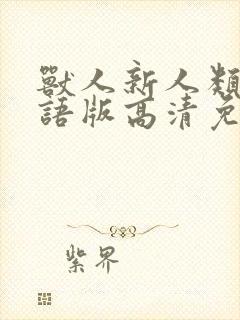 獸人新人類
語版高清免
紫界